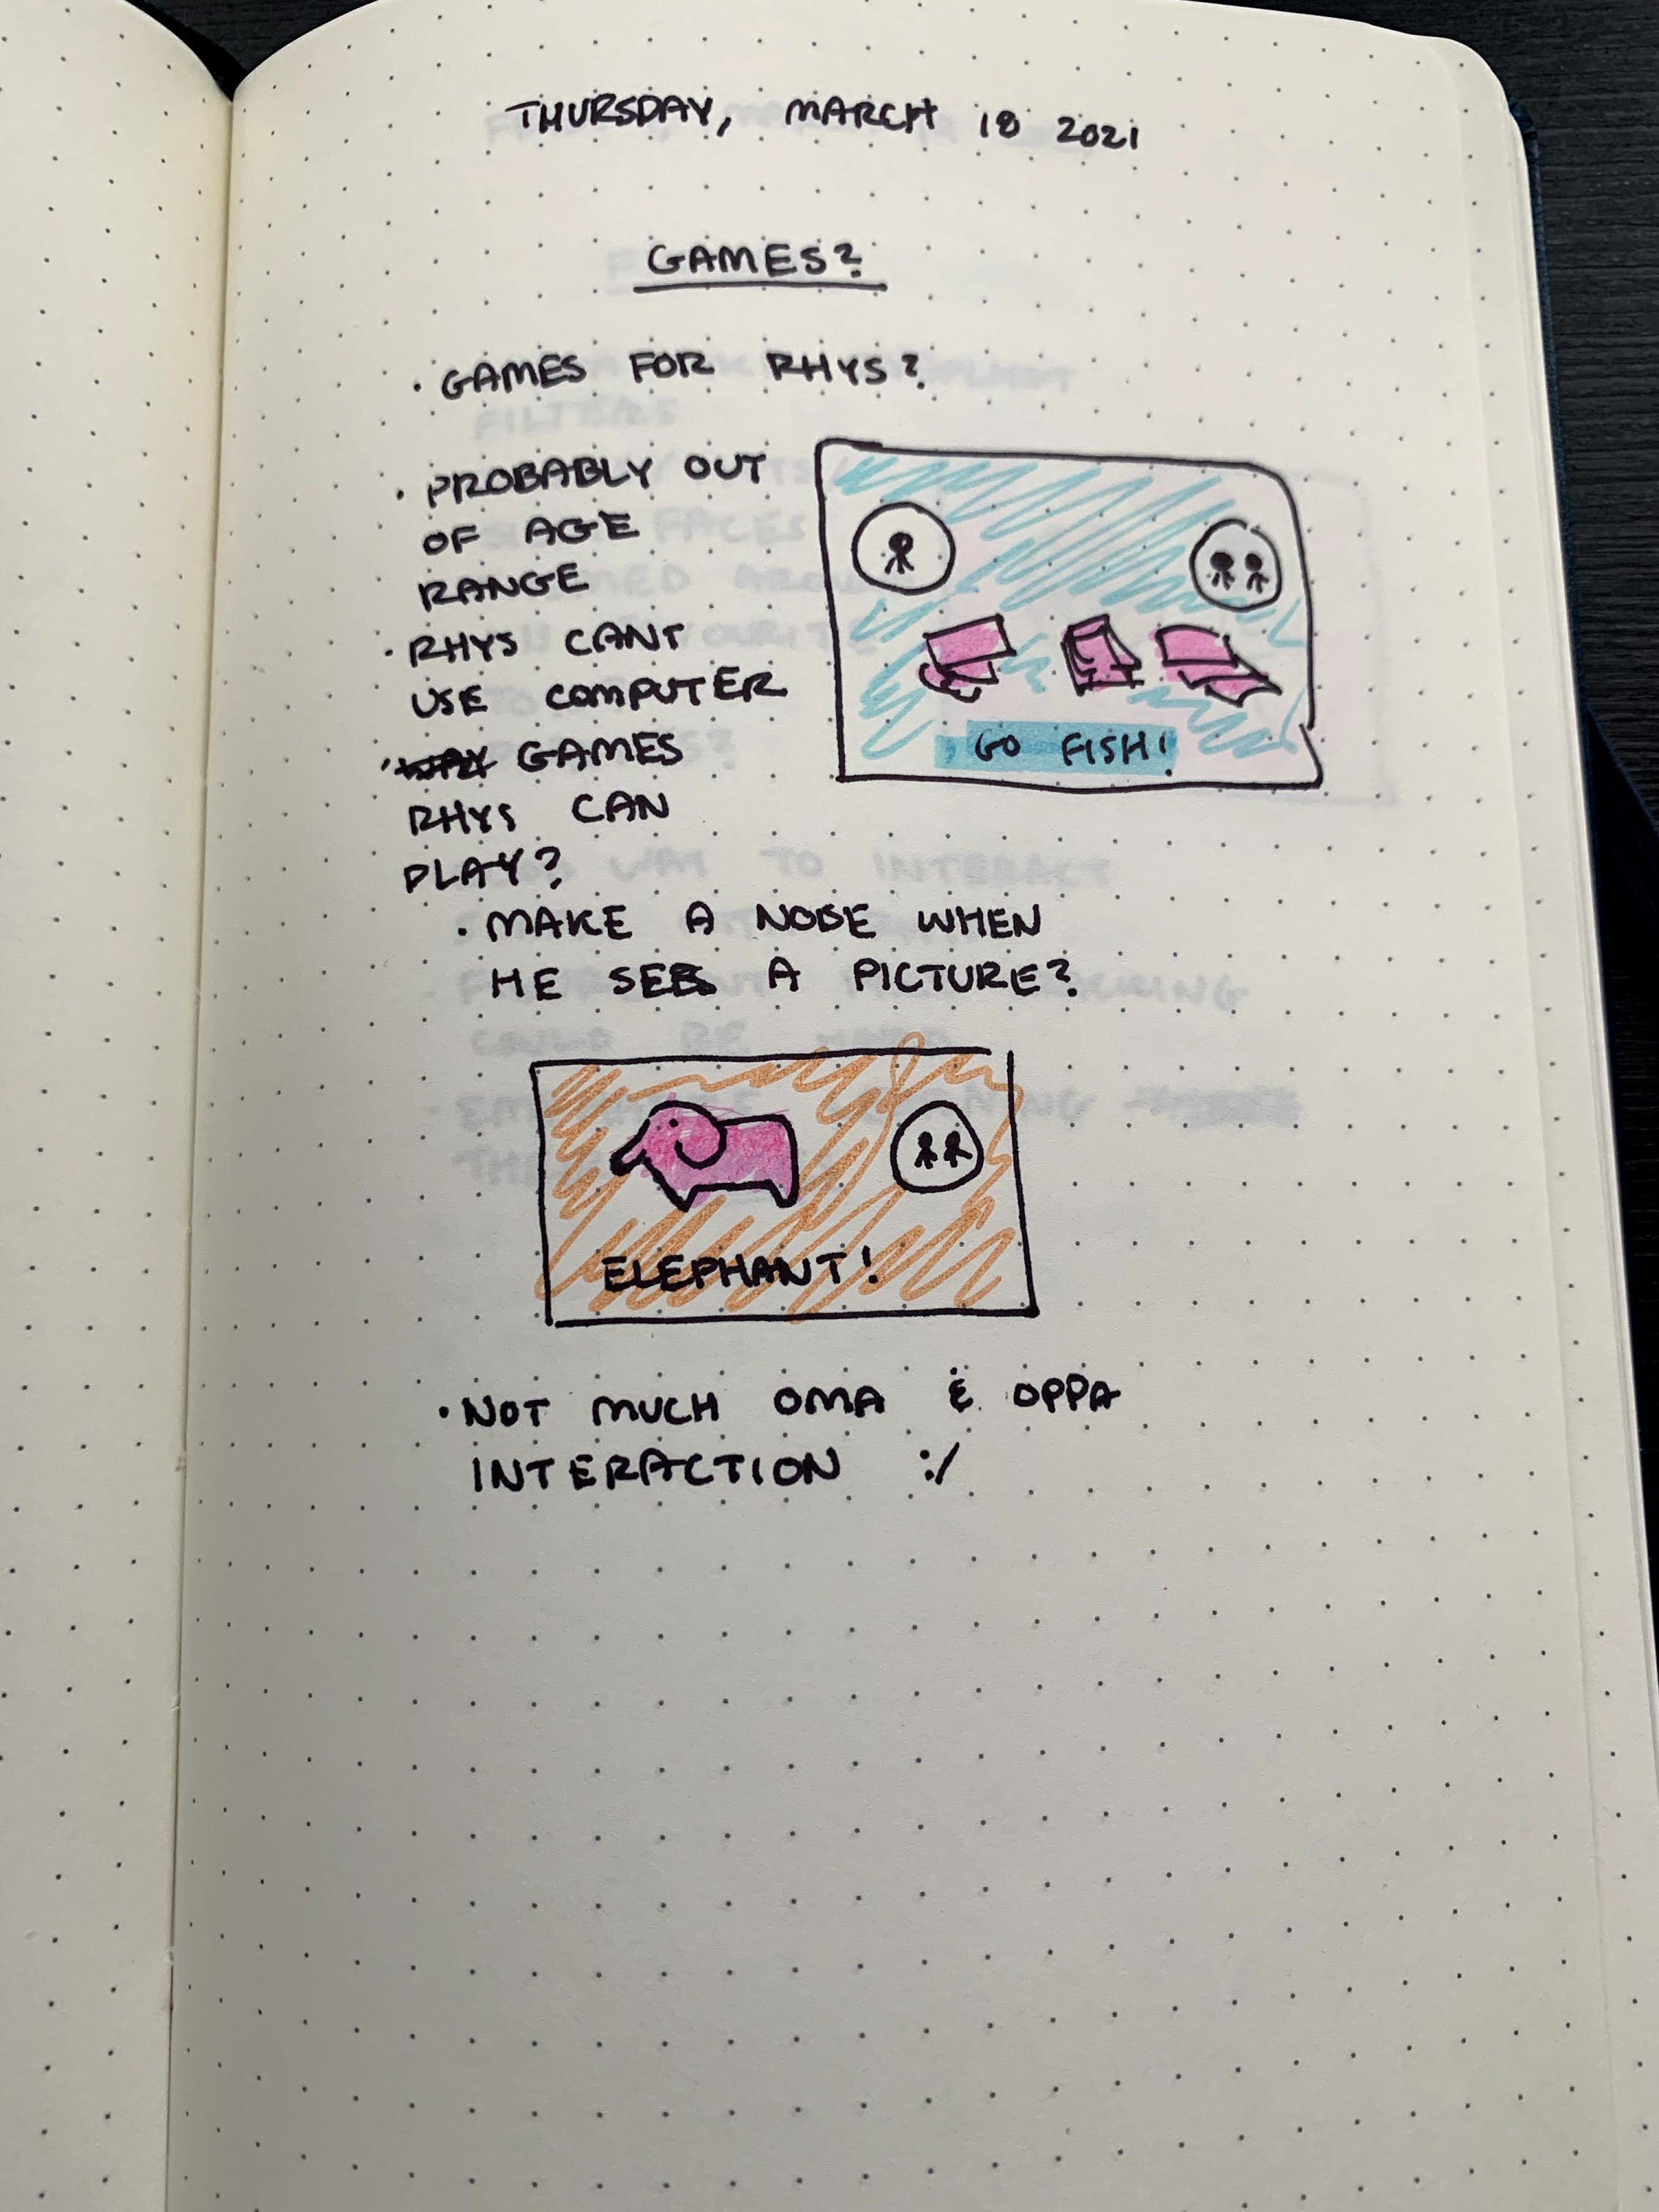 THURSDAY, MARCH 18 2021
GAMES?
· GAMES FOR RHYS?
· PROBABLY OUT
OF AGE
RANGE
· RHYS CANT
USE COMPUTER
· WAY GAMES
RHYS CAN
PLAY?
GO FISH!
· MAKE A NOISE WHEN
HE SEES A PICTURE?
ELEPHANT!
· NOT MUCH OMA & OPPA
INTERACTION :/